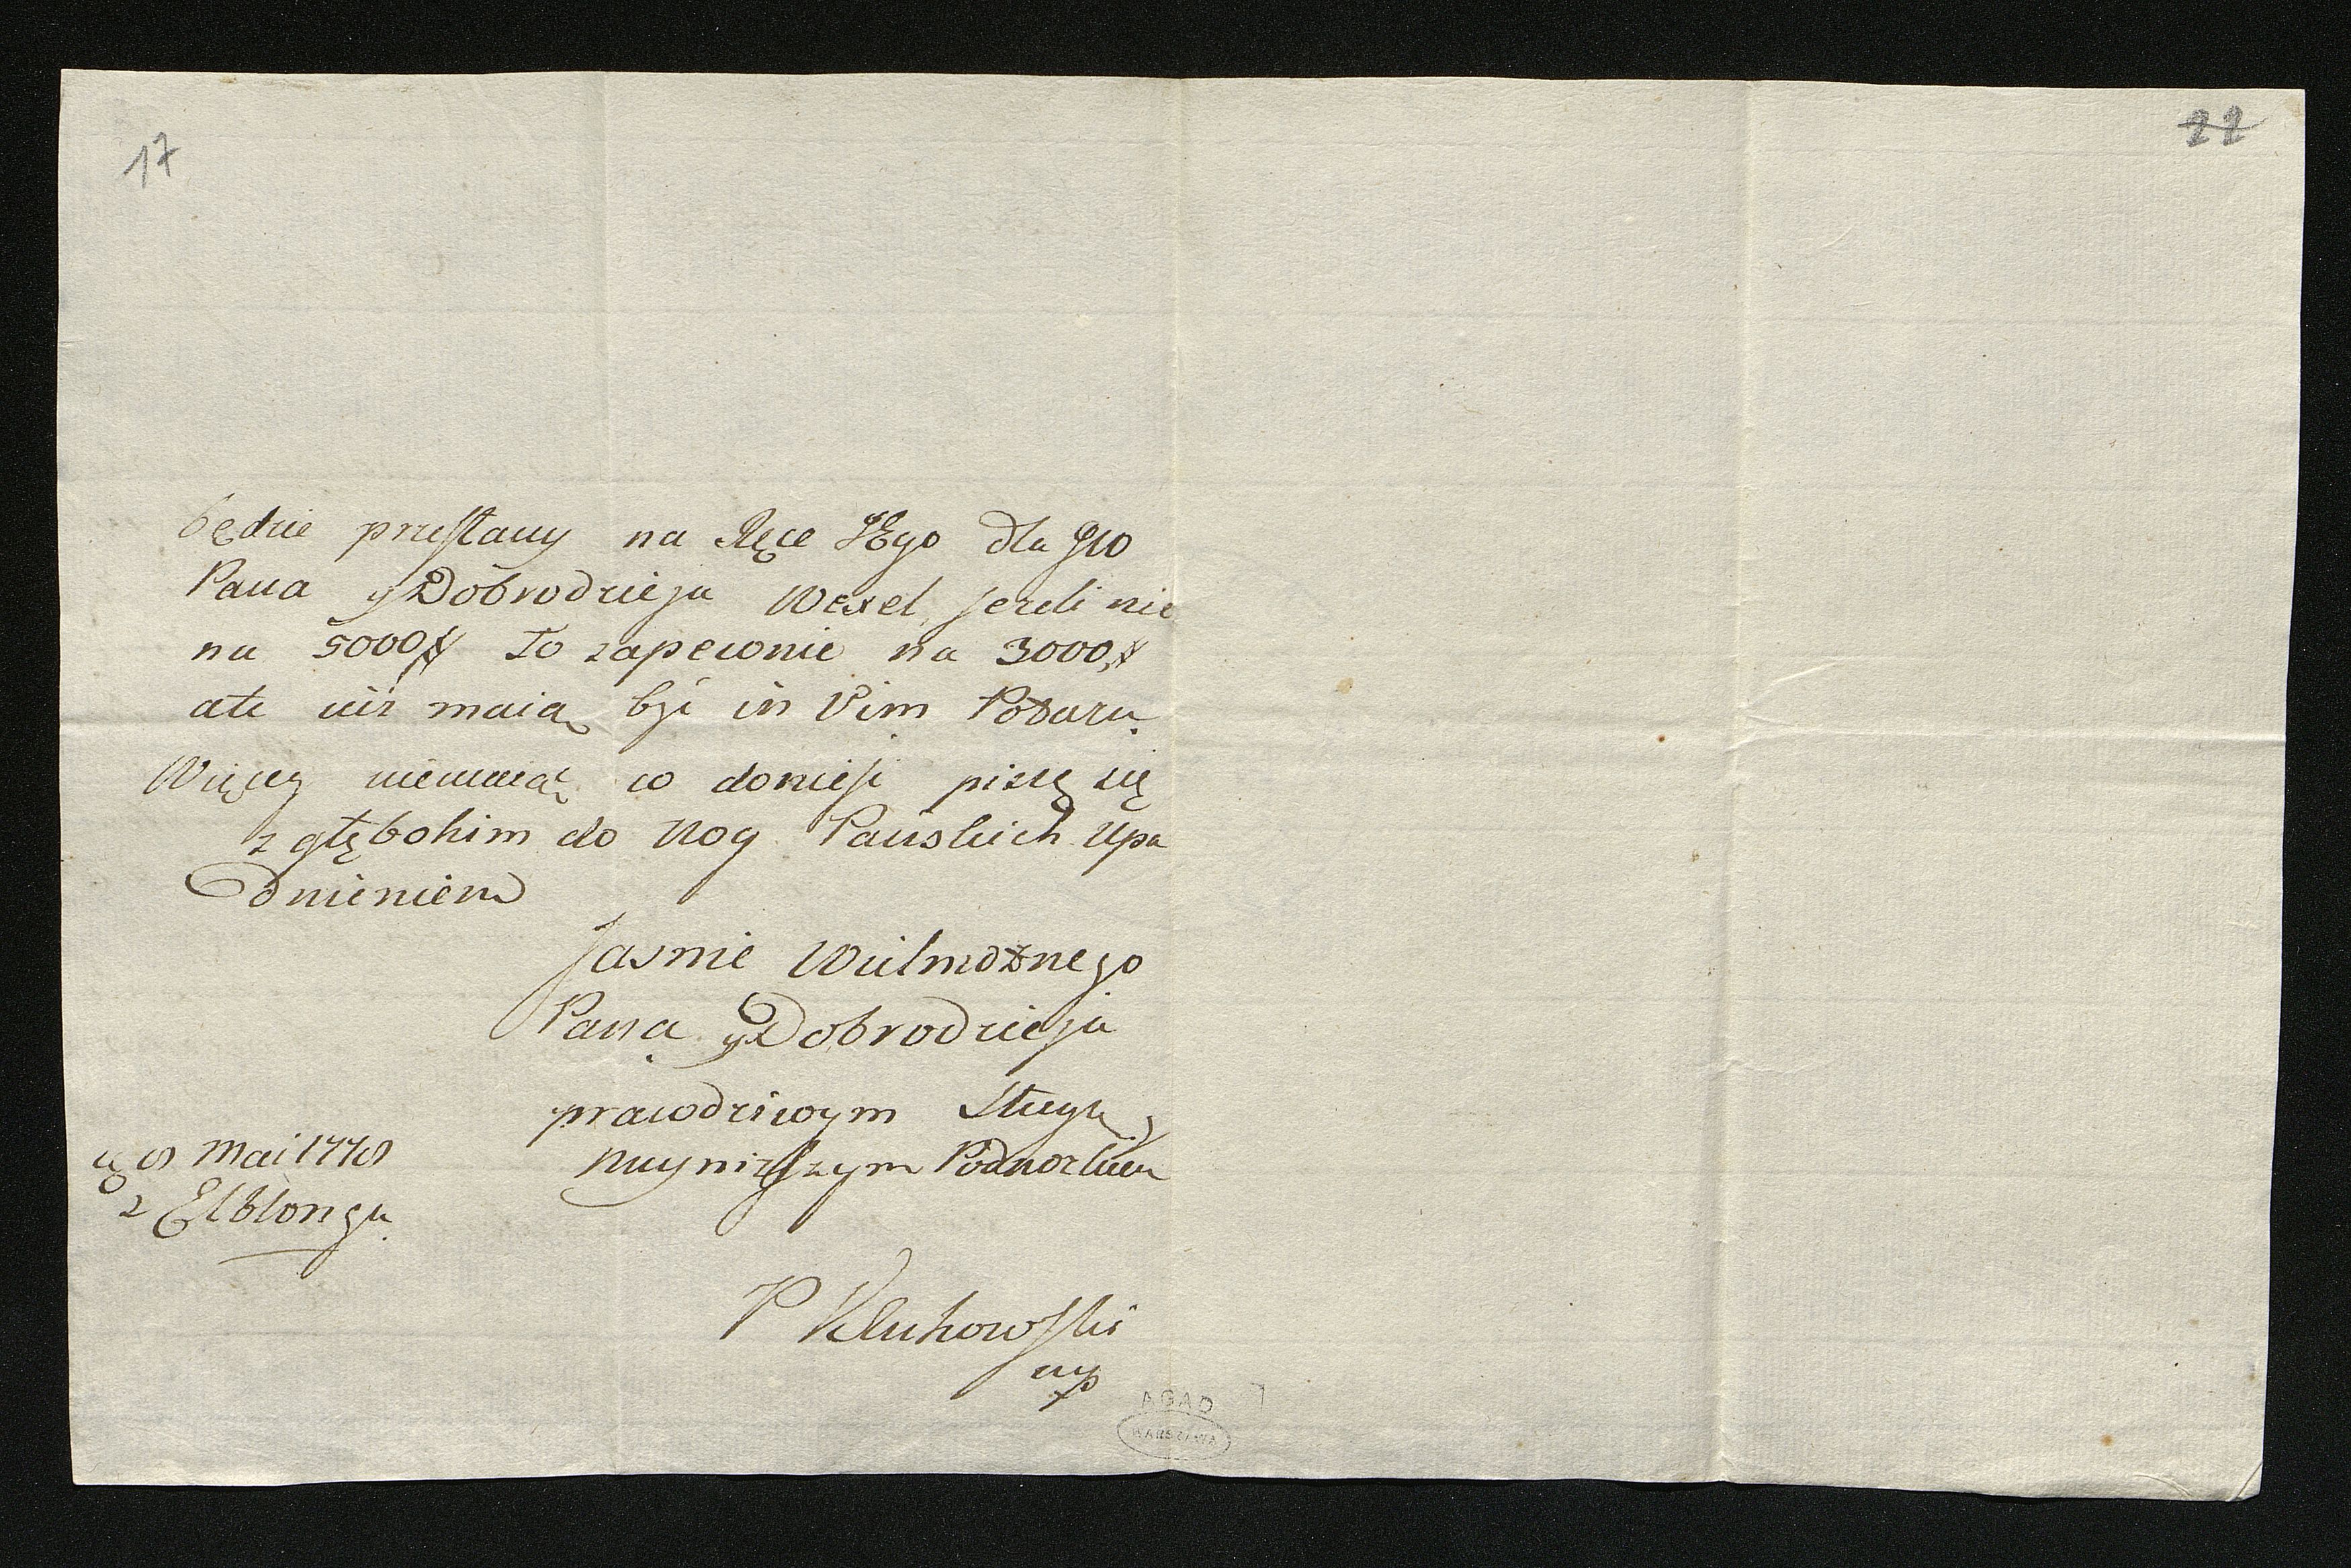 17
22
będzie przesłany na Ręce JEgo dla JW
Pana y Dobrodzieja Wexel, jezeli nie
na 5000# To zapewnie na 3000#
ale iusz maią byc in Vim Podaru
Więcey niemaiąc co doniesc piszę się
z głębokim do Nog Panskich Upa
dnieniem
Jasnie Wielmoznego
Pana y Dobrodzieja
prawdziwym Sługą
nayniższym Podnozkiem
8 Mai 1778
z Elblonga
P Klukowski
mp
AGAD
WARSZAWA